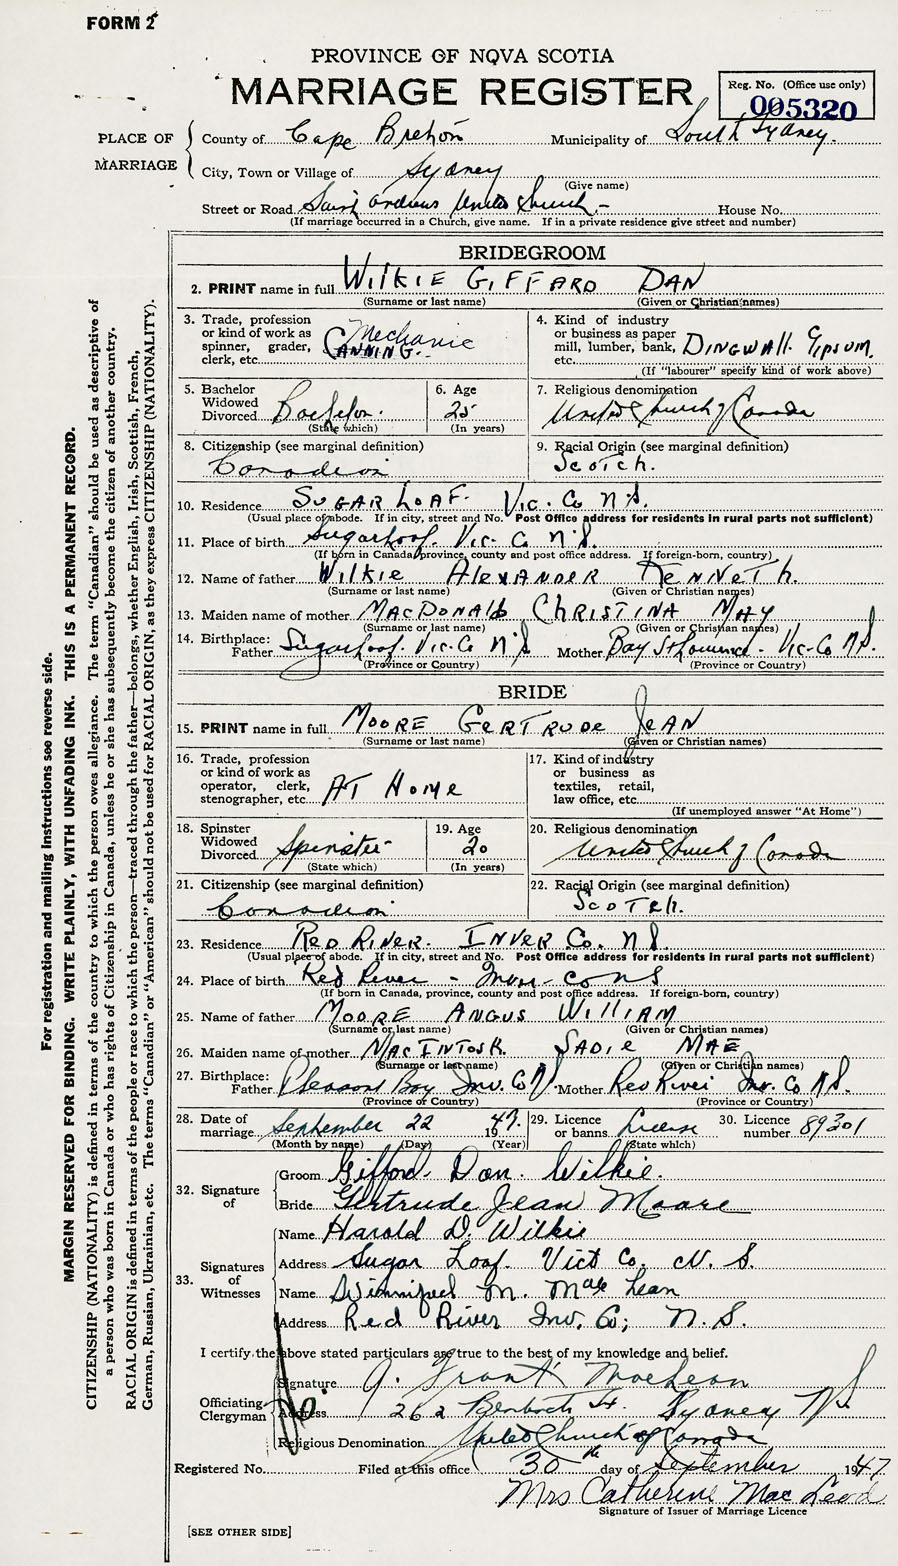 FORM 2
PROVINCE OF NOVA SCOTIA
MARRIAGE REGISTER
Reg. No. (Office use only)
005320
PLACE OF MARRIAGE
County of Cape Breton Municipality of South Sydney
City, Town or Village of Sydney
(Give name)
Street or Road Saint Andrews United Church - House No.
(If marriage occurred in a Church, give name. If in a private residence give street and number)
BRIDEGROOM
2. PRINT name in full WILKIE GIFFARD DAN
(Surname or last name) (Given or Christian names)
3. Trade, profession or kind of work as spinner, grader, clerk, etc. Mechanic
4. Kind of industry or business as paper mill, lumber, bank, etc. DINGWALL GIPSUM.
(If "labourer" specify kind of work above)
5. Bachelor Widowed Divorced Bachelor.
(State which)
6. Age 25
(In years)
7. Religious denomination United Church of Canada
8. Citizenship (see marginal definition) Canadian
9. Racial Origin (see marginal definition) Scotch.
10. Residence SUGAR LOAF. Vic. Co N.S.
(Usual place of abode. If in city, street and No. Post Office address for residents in rural parts not sufficient)
11. Place of birth Sugarloaf. Vic. Co N.S.
(If born in Canada, province, county and post office address. If foreign-born, country)
12. Name of father WILKIE ALEXANDER KENNETH.
(Surname or last name) (Given or Christian names)
13. Maiden name of mother MACDONALD CHRISTINA MAY
(Surname or last name) (Given or Christian names)
14. Birthplace: Father Sugarloaf. Vic. Co N.S Mother Bay St Lawrence - Vic. Co N.S.
(Province or Country) (Province or Country)
BRIDE
15. PRINT name in full MOORE GERTRUDE JEAN
(Surname or last name) (Given or Christian names)
16. Trade, profession or kind of work as operator, clerk, stenographer, etc. AT HOME
17. Kind of industry or business as textiles, retail, law office, etc.
(If unemployed answer "At Home")
18. Spinster Widowed Divorced Spinster
(State which)
19. Age 20
(In years)
20. Religious denomination United Church of Canada
21. Citizenship (see marginal definition) Canadian
22. Racial Origin (see marginal definition) SCOTCH.
23. Residence RED RIVER. INVER CO. N.S.
(Usual place of abode. If in city, street and No. Post Office address for residents in rural parts not sufficient)
24. Place of birth Red River - Inver - Co NS
(If born in Canada, province, county and post office address. If foreign-born, country)
25. Name of father MOORE ANGUS WILLIAM
(Surname or last name) (Given or Christian names)
26. Maiden name of mother MACINTOSH. SADIE MAE
(Surname or last name) (Given or Christian names)
27. Birthplace: Father Pleasant Bay Inv. Co N.S. Mother Red River Inv. Co N.S.
(Province or Country) (Province or Country)
28. Date of marriage September 22 1947.
(Month by name) (Day) (Year)
29. Licence or banns License
(State which)
30. Licence number 89301
32. Signature of
Groom Gifford. Dan. Wilkie.
Bride Gertrude Jean Moore
33. Signatures of Witnesses
Name Harold D. Wilkie
Address Sugar Loaf. Vict Co. N. S.
Name Winnifred M. MacLean
Address Red River Inv. Co; N.S.
I certify the above stated particulars are true to the best of my knowledge and belief.
Officiating Clergyman
Signature Grant MacLean
Address 262 Sydney NS
Religious Denomination United Church of Canada
Registered No. Filed at this office 30th day of September 1947
Mrs Catherine MacLeod
Signature of Issuer of Marriage Licence
[SEE OTHER SIDE]
For registration and mailing instructions see reverse side.
MARGIN RESERVED FOR BINDING. WRITE PLAINLY, WITH UNFADING INK. THIS IS A PERMANENT RECORD.
CITIZENSHIP (NATIONALITY) is defined in terms of the country to which the person owes allegiance. The term "Canadian" should be used as descriptive of
a person who was born in Canada or who has rights of Citizenship in Canada, unless he or she has subsequently become the citizen of another country.
RACIAL ORIGIN is defined in terms of the people or race to which the person—traced through the father—belongs, whether English, Irish, Scottish, French,
German, Russian, Ukrainian, etc. The terms "Canadian" or "American" should not be used for RACIAL ORIGIN, as they express CITIZENSHIP (NATIONALITY).